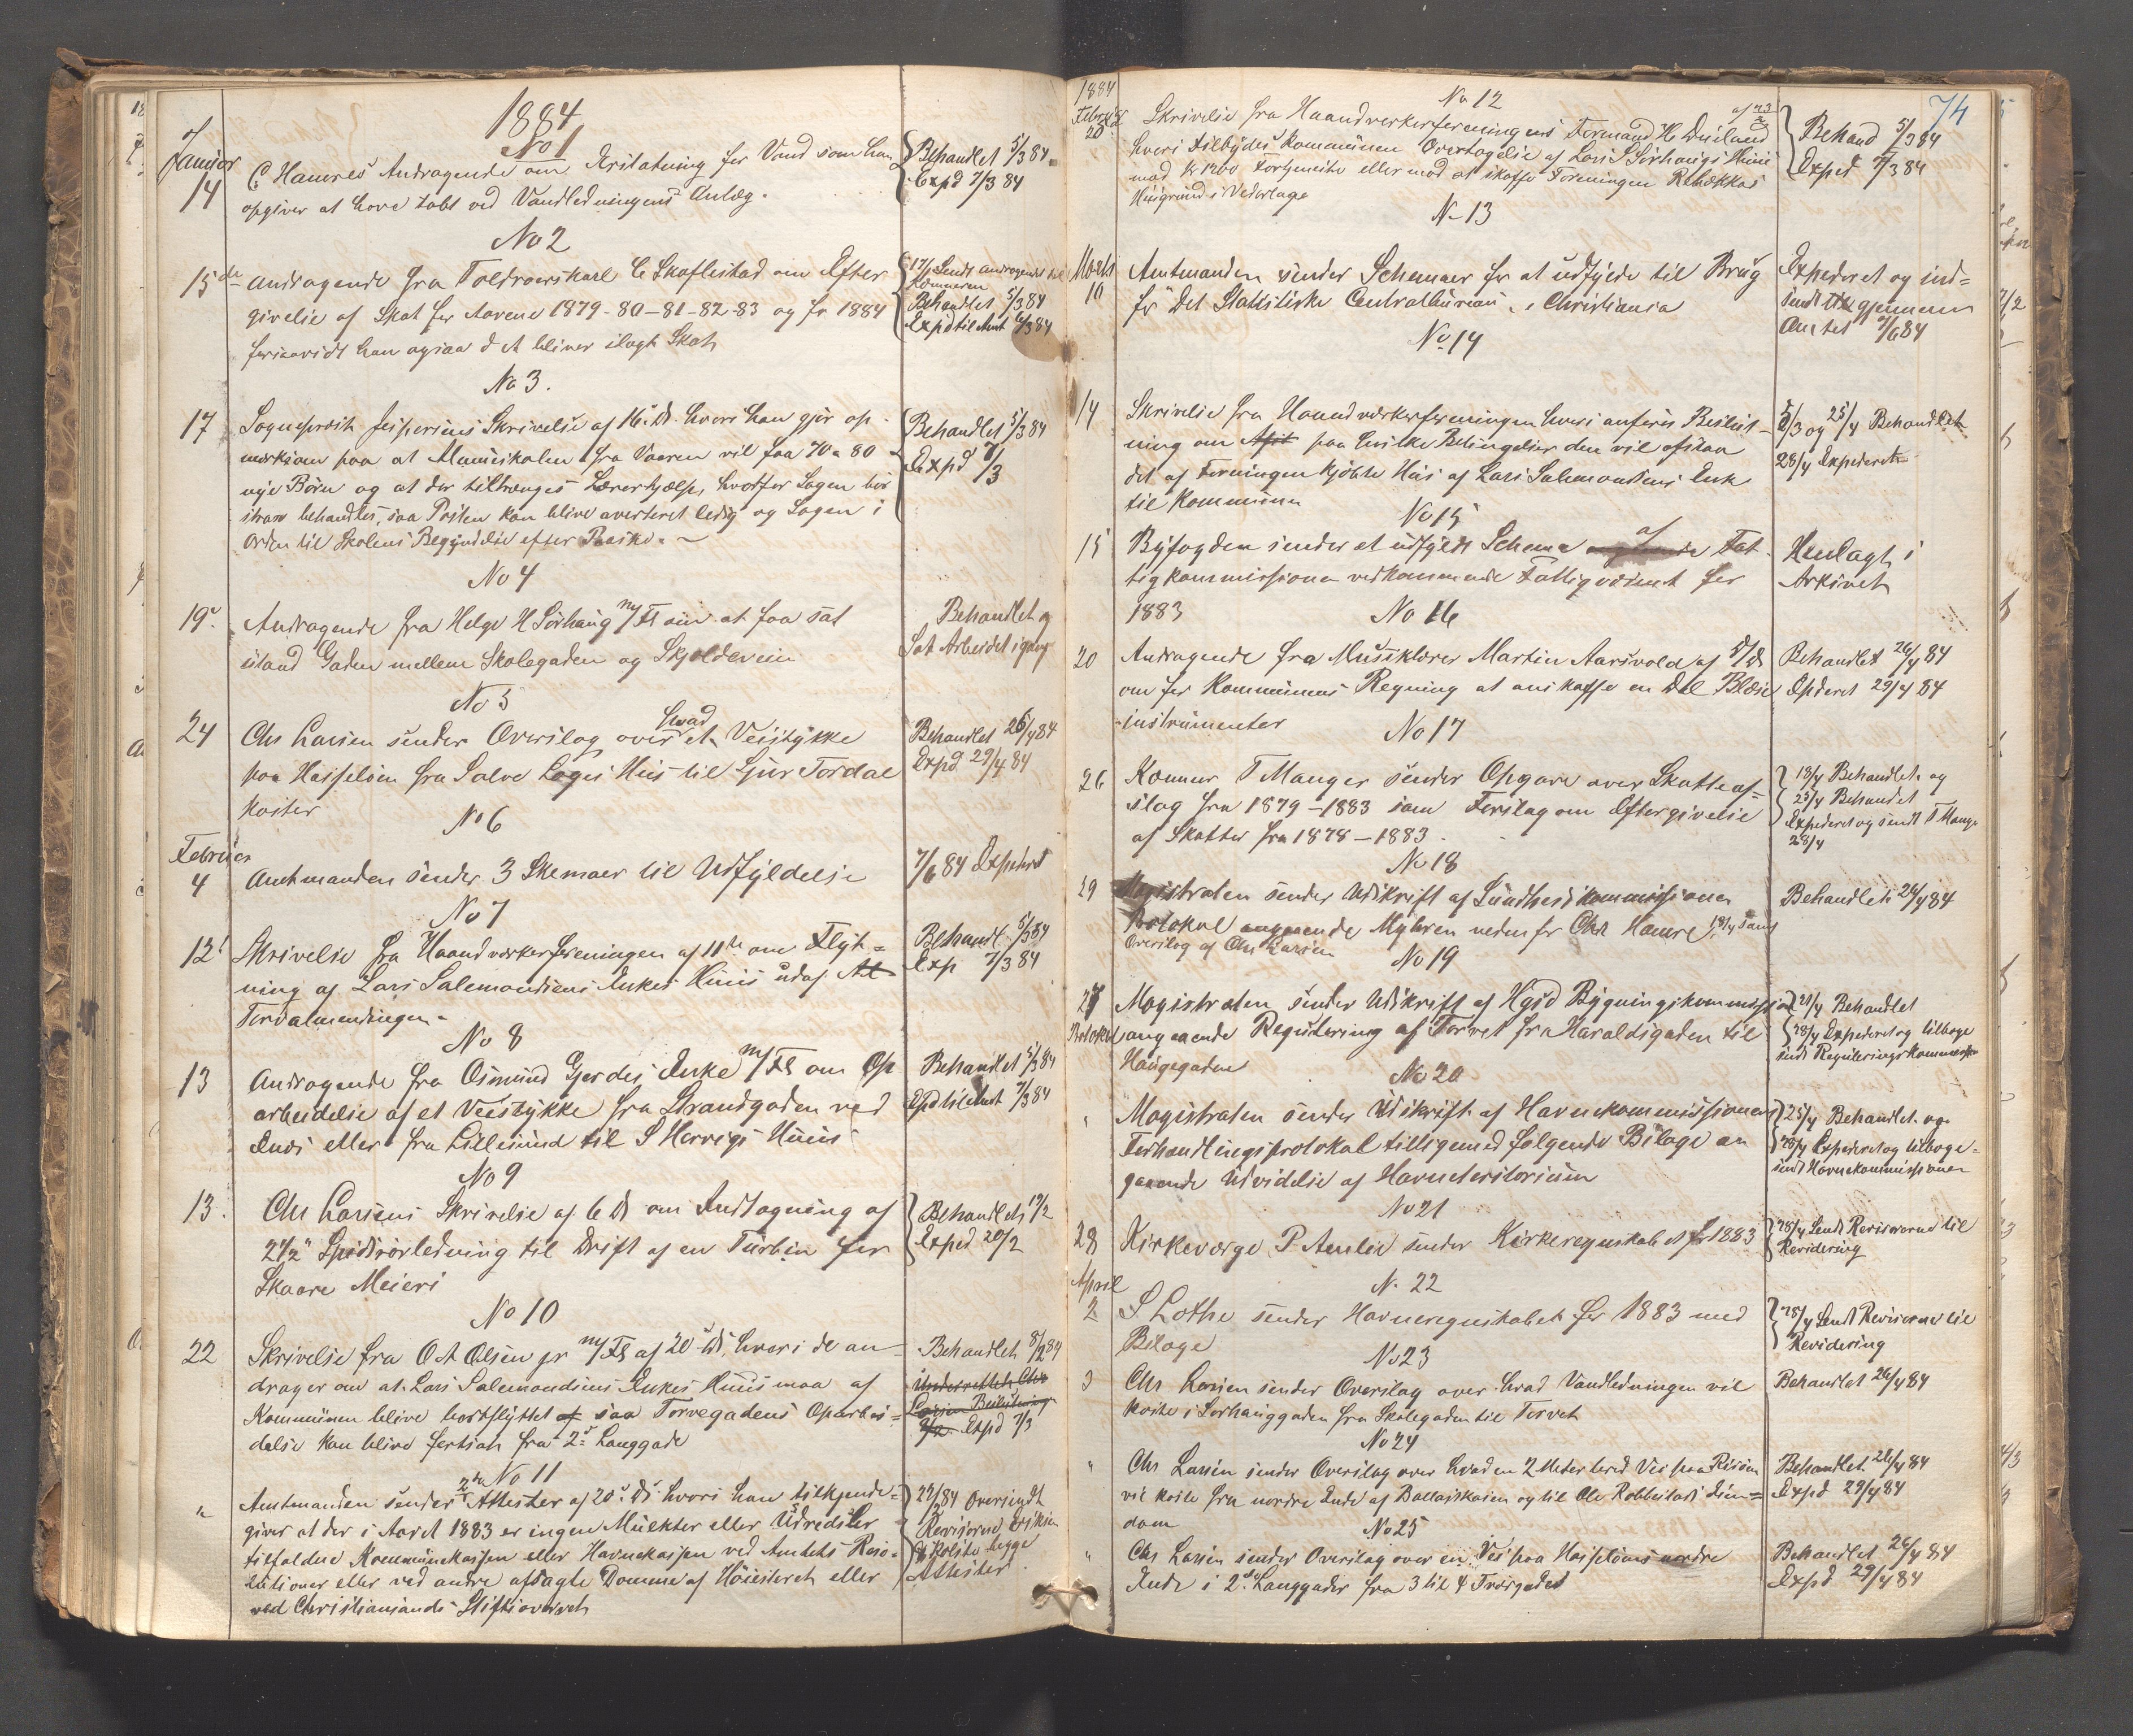 1884
No 1
Januar
14
C. Hamres Andragende om Erstatning for Vand som han
opgiver at have tabt ved Vandledningens Anlæg.
Behandlet 5/3 84
Expd 7/3 84
No 2
15de Andragende fra Toldroerskarl C Skoflestad om Efter
givelse af Skat for Aarene 1879-80-81-82-83 og for 1884
forsaavidt han ogsaa d A bliver ilagt Skat
17/1 Sendt andragendet til
Kæmneren
Behandlet 5/3 84
Expd til Amt 6/3 84
No 3.
17 Sogneprest Jespersens Skrivelse af 16 Ds. hvori han gjør op-
merksom paa at Almueskolen fra Vaaren vil faa 70 a 80
nye Børn og at der tiltrænges Lærerhjælp, hvorfor Sagen bør
strax behandles, saa Posten kan blive averteret ledig og Sagen i
Orden til Skolens Begyndelse efter Paaske.
Behandlet 5/3 84
Expd 7/3
No 4
19. Andragende fra Helge H Sørhaug m/Fl om at faa sat
istand Gaden mellem Skolegaden og Skjoldevein
Behandlet og
Sat Arbeidet igang
No 5
24 Chr Larsen sender Overslag over hvad et Veistykke
paa Hasseløen fra Salve Loges Hus til Sjur Tordal
koster
Behandlet 26/4 84
Expd 29/4 84
No 6
Februar
4 Amtmanden sender 3 Skemaer til Udfyldelse
7/6 84 Expederet
No 7
12 Skrivelse fra Haandværkerforeningen af 11te om Flyt-
ning af Lars Salemonsens Enkes Huus udaf Al
Torvalmendingen.
Behandl 5/3 84
Exp 7/3 84
No 8
13 Andragende fra Osmund Gjerdes Enke m/Fl om Op
arbeidelse af et Veistykke fra Strandgaden ved
Ends eller fra Lillesund til S Hervigs Huus
Behandlet 5/3 84
Expd til Amt 7/3 84
No 9
13. Chr Larsens Skrivelse af 6 Ds om Indtagning af
2 1/2" Spidsrørledning til Drift af en Turbin for
Skaare Meieri
Behandlet 19/2
Exped 20/2
No 10
22 Skrivelse fra O A Olsen jr m/Fl af 20 Ds, hvori de an-
drager om at Lars Salemonsens Enkes Huus maa af
Kommunen blive bortflyttet af saa Torvegadens Oparbei-
delse kan blive fortsat fra 2d Langgade
Behandlet 5/3 84
Underrettet Chr
Larsen Beslutning
Expd 7/3
No 11
" Amtmanden sender 2de Attester af 20 Ds hvori han tilkjende-
giver at der i Aaret 1883 er ingen Mulkter eller Udredsler
tilfaldne Kommunekassen eller Havnekassen ved Amtets Reso-
lutioner eller ved andre afsagte Domme af Høiesteret eller
ved Christiansands Stiftsoverret
29/2 84 Oversendt
Revisorne
Attester
1884
74
No 12
Februar
20
Skrivelse fra Haandverkerforeningens Formand H. af 23/2
hvori tilbydes Kommunen Overtagelse af Lars S Sørhaugs Huus
mod Kr 1200 Fortjeneste eller mod at skaffe Foreningen Rebækkas
Husgrund i Vederlage
Behand 5/3 84
Exped 7/3 84
No 13
Marts
10
Amtmanden sender Schemaer for at udfylde til Brug
for det Statistiske Centralbureau i Christiania
Expederet og ind-
sendt gjennem
Amtet 7/6 84
No 14
14 Skrivelse fra Haandværkerforeningen hvori anføres Beslut-
ning om paa hvilke Betingelser den vil afstaa
det af Foreningen kjøbte Hus af Lars Salemonsens Enke
til Kommunen
5/3 og 25/4 Behandlet
28/4 Expederet
No 15
15 Byfogden sender et udfyldt Schema af Fat-
tigkommissionen vedkommende Fattigvæsenet for
1883
Henlagt i
Arkivet
No 16
20 Andragende fra Musiklærer Martin Aarsvold af Ds
om for Kommunens Regning at anskaffe en Del Blæse
instrumenter
Behandlet 26/4 84
Expederet 29/4 84
No 17
26 Kæmner T Manger sender Opgave over Skatteaf-
slag fra 1879-1883 som Forslag om Eftergivelse
af Skatter fra 1878-1883.
18/4 Behandlet og
25/4 Behandlet
Expederet og sendt T Mange
28/4
No 18
29 Magistraten sender Udskrift af Sundhedskommissionen
Protokol angaaende Myhren nedenfor Chr Hamre, 18/4 samt
Overslag af Chr Larsen
Behandlet 26/4 84
No 19
27 Magistraten sender Udskrift af Hgsd Bygningskommission
Protokol angaaende Regulering af Torvet fra Haraldsgaden til
Haugegaden
21/4 Behandlet
28/4 Expederet og tilbage
sendt Reguleringskommission
No 20
" Magistraten sender Udskrift af Havnekommissionens
Forhandlingsprotokol tilligemed følgende Bilage an
gaaende Udvidelse af Havneteritorium
25/4 Behandlet og
28/4 Expederet og tilbage-
sendt Havnekommissionen
No 21
28 Kirkeværge P Amlie sender Kirkeregnskabet for 1883
28/4 Sendt Revisorerne til
Revidering
No 22
April
2 S Lothe sender Havneregnskabet for 1883 med
Bilage
28/4 Sendt Revisorerne til
Revidering
No 23
3 Chr Larsen sender Overslag over hvad Vandledningen vil
koste i Sørhauggaden fra Skolegaden til Torvet
Behandlet 26/4 84
No 24
" Chr Larsen sender Overslag over hvad en 2 Meter bred Vei paa Risøen
vil koste fra nordre Ende af Ballastkaien og til Ole Rabbestads Eien-
dom
Behandlet 26/4 84
Expd 29/4 84
No 25
" Chr Larsen sender Overslag over en Vei paa Hasseløens nordre
Ende i 2d Langgader fra 3 til 4 Tværgaded
Behandlet 26/4 84
Expd 29/4 84